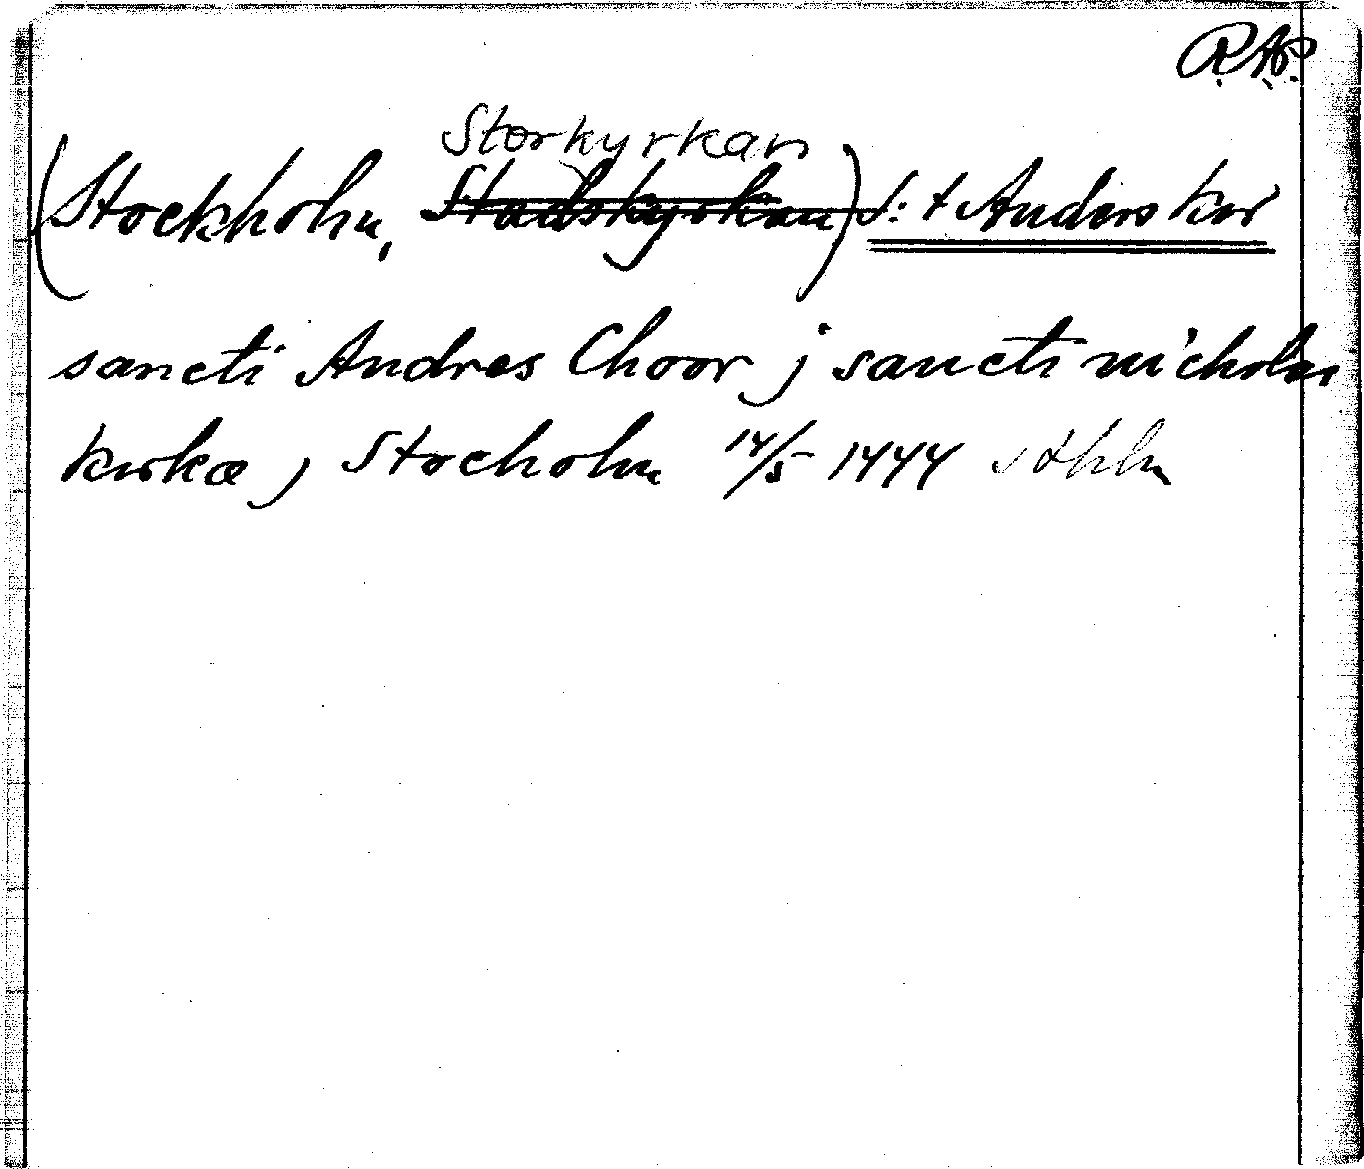 R.A.P.
Storkyrkan
(Stockholm, Stadskyrkan) S:t Anders kor
sancti Andres Choor j sancti nicholai
kirkæ j Stocholm 14/5 1444 sthlm